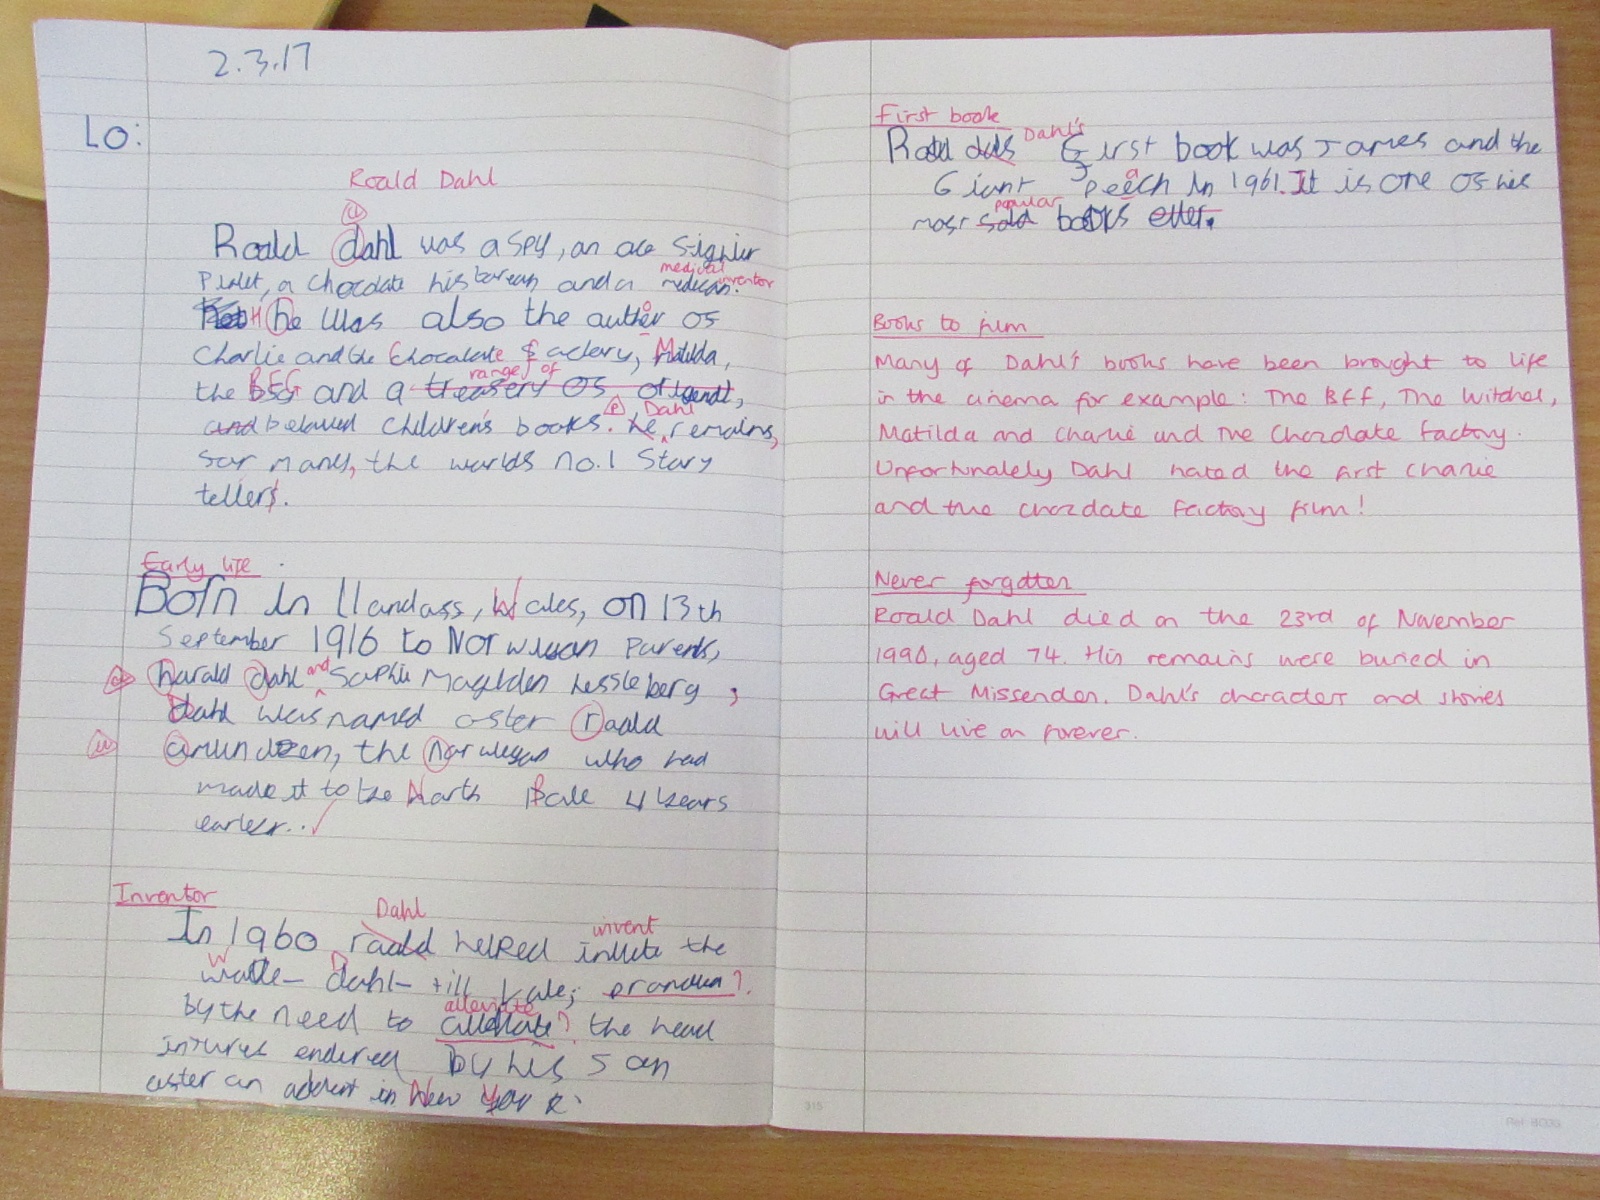 2.3.17
LO:
Roald Dahl
Roald dahl was a spy, an ace
Pilet, a chocdate and a medical inventor
H he was also the author os
Charlie and the Chocolate factory, Matilda,
ranges of
the BFG and a treasery os
and belowed Children's books. he Dahl remains,
sor many, the worlds no.1 Story
tellers.
Early life
Born in Llandass, Wales, on 13th
September 1916 to Norwegan Parents,
harald dahl and Sophie Hessleberg,
Dahl was named aster roald
amundzen, the norwegan who had
made it to the North Pole 4 years
earler..
Inventor
Dahl invent
In 1960 roald helped the
W D
wade- dahl- till
alleviate
by the need to the head
endured by his son
aster an in New York.
First book
Roald Dahl's first book was James and the
a
Giant peech in 1961. It is one os his
popular
most sold books
Books to film
Many of Dahl's books have been brought to life
in the cinema for example: The BFF, The Witches,
Matilda and Charlie and The Chocolate Factory.
Unfortunately Dahl hated the first Charlie
and the chocolate Factory film!
Never forgotten
Roald Dahl died on the 23rd of November
1990, aged 74. His remains were buried in
Great Missenden. Dahl's characters and stories
will live on forever.
315